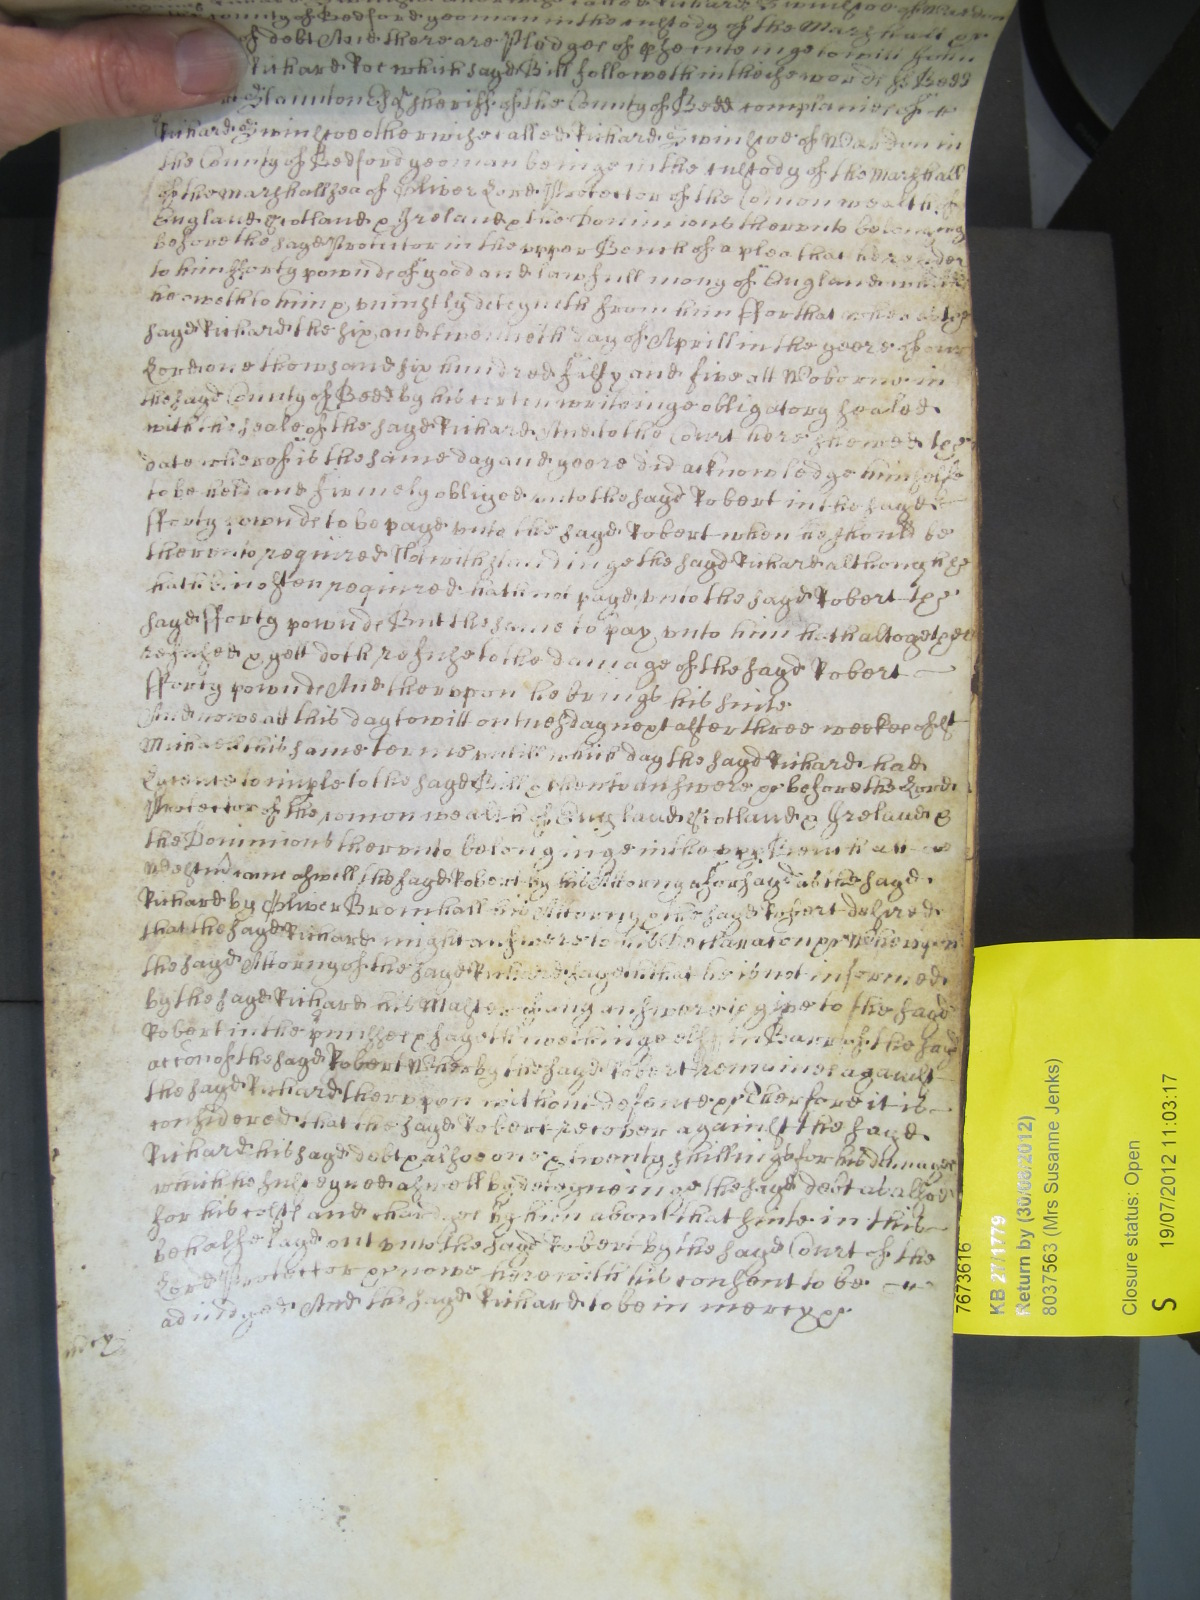 County of Bedford yeoman in the custody of the Marshall &c
of debt And there are Pledges of prosecuteinge to witt John
Richard Roe which sayd Bill followeth in these words ss Bedd
Staunton Esqr Sheriff of the County of Bedd complaines of
Richard otherwise called Richard of Wardon in
the County of Bedford yeoman beinge in the custody of the Marshall
of the Marshallsea of Oliver Lord Protector of the Comon wealth of
England Scotland & Ireland & the Dominions therunto belonging
before the sayd Protector in the upper Bench of a plea that he render
to him fforty pownds of good and lawfull mony of England which
he oweth to him & uniustly deteyneth from him ffor that wheras the
sayd Richard the six and twentieth day of Aprill in the yeere of our
Lord one thowsand six hundred fifty and five att Woborne in
the sayd County of Bedd by his certen writeinge obligatory sealed
with the seale of the sayd Richard And to the Court here shewed the
date wherof is the same day and yeere did acknowledge himselfe
to be held and firmely obliged unto the sayd Robert in the sayd
fforty pownds to be payd unto the sayd Robert when he should be
therunto required Notwithstandinge the sayd Richard although he
hath bin often required hath not payd unto the sayd Robert the
sayd fforty pownds But the same to pay unto him hath altogether
refused & yett doth refuse to the damage of the sayd Robert
fforty pownds And therupon he brings his suite
And nowe att this day to witt on tuesday next after three weekes of St
Michaell this same terme untill which day the sayd Richard had
Lycence to imple to the sayd Bill & then to answere &c before the Lord
Protector of the comon wealth of England Scotland & Ireland &
the Dominions therunto belonginge in the upper Bench att
Westmr came aswell the sayd Robert by his Attorny aforsayd as the sayd
Richard by Oliver Bromhall his Attorny & the sayd Robert desired
that the sayd Richard might answere to his Declaraton &c Wherupon
the sayd Attorny of the sayd Richard sayd that he is not informed
by the sayd Richard his Master of any answere to give to the sayd
Robert in the premisses & sayeth nothinge else in Barr of the sayd
accon of the sayd Robert Wherby the sayd Robert remaines against
the sayd Richard therupon without defence &c Therfore it is
considered that the sayd Robert recover against the sayd
Richard his sayd debt & alsoe one & twenty shillings for his damages
which he susteyned aswell by deteyneinge the sayd debt as alsoe
for his costs and chardges by him about that suite in this
behalfe layd out unto the sayd Robert by the sayd Court of the
Lord Protector &c nowe here with his consent to be
adiudged And the sayd Richard to be in mercy &c
mcy
7673616
KB 27/1779
Return by (30/08/2012)
8037563 (Mrs Susanne Jenks)
Closure status: Open
S 19/07/2012 11:03:17